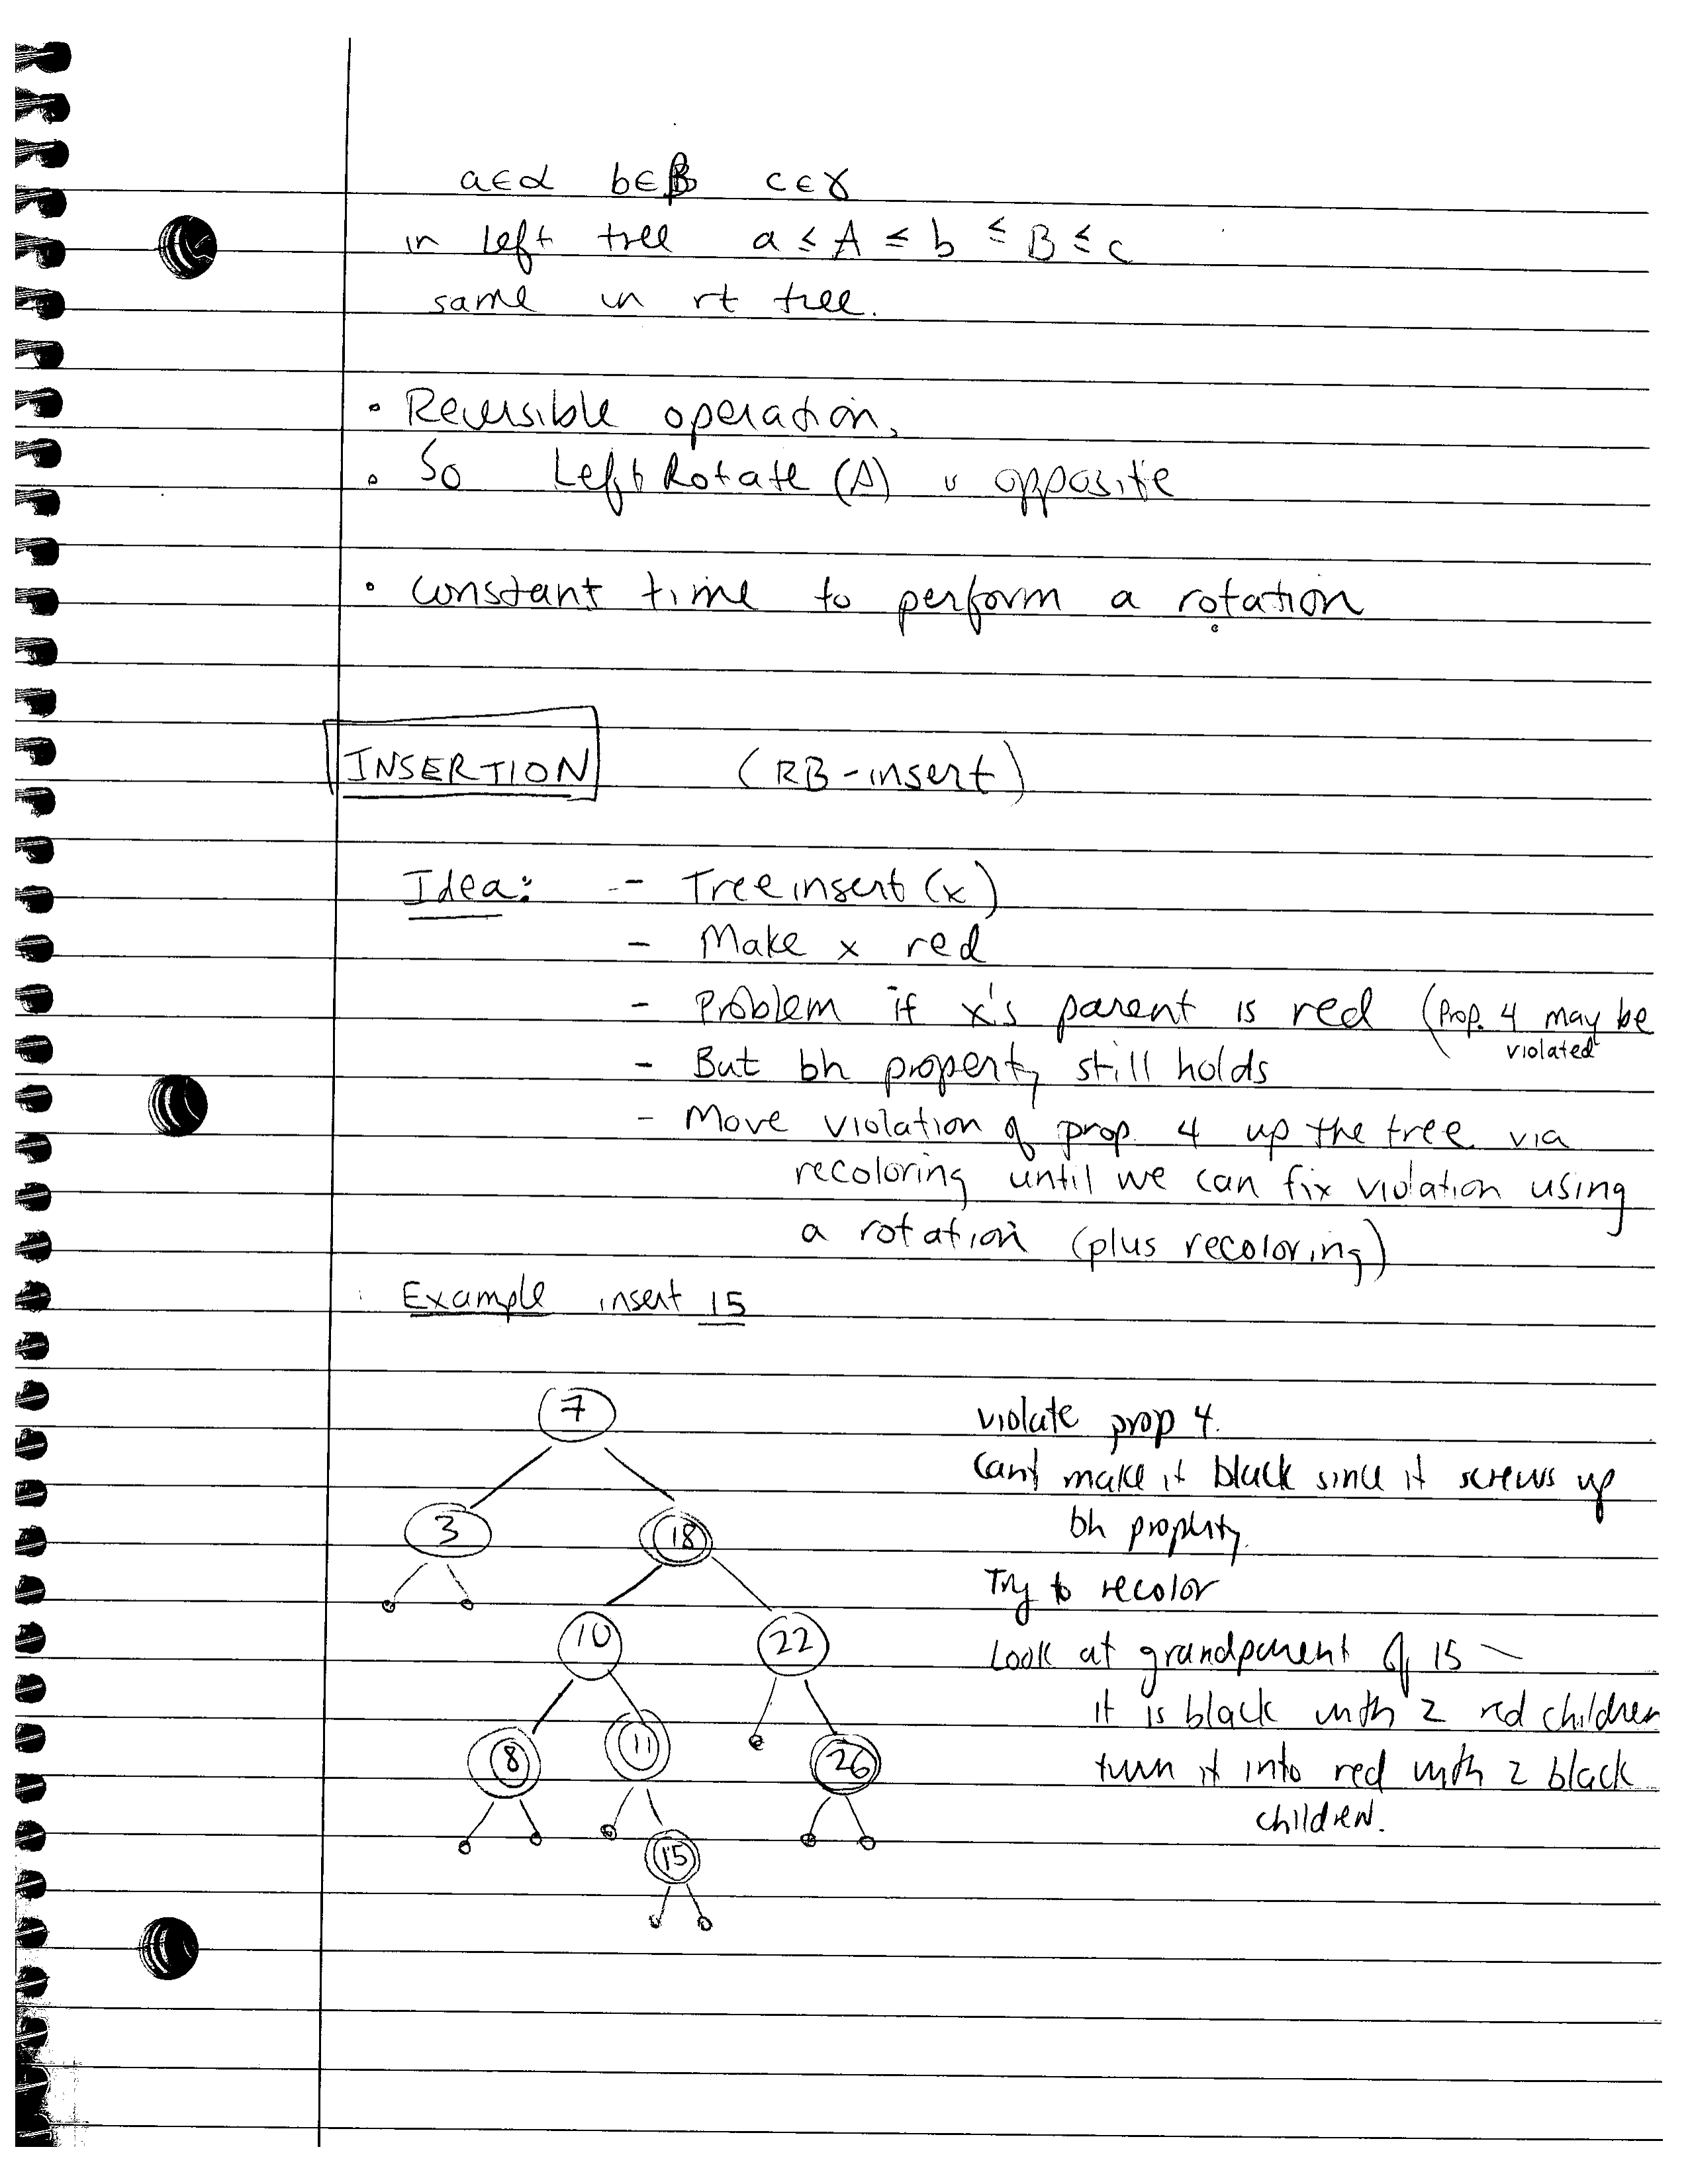 a∈α b∈β c∈γ
in left tree a ≤ A ≤ b ≤ B ≤ c
same in rt tree.
• Reversible operation,
• So Left Rotate (A) is opposite
• constant time to perform a rotation
INSERTION (RB-insert)
Idea: - Tree insert (x)
- Make x red
- Problem if x's parent is red (Prop. 4 may be
violated
- But bh property still holds
- Move violation of prop. 4 up the tree via
recoloring until we can fix violation using
a rotation (plus recoloring)
Example insert 15
7
3 18
10 22
8 11 26
15
violate prop 4.
Cant make it black since it screws up
bh property.
Try to recolor
Look at grandparent of 15 –
it is black with 2 red children
turn it into red with 2 black
children.